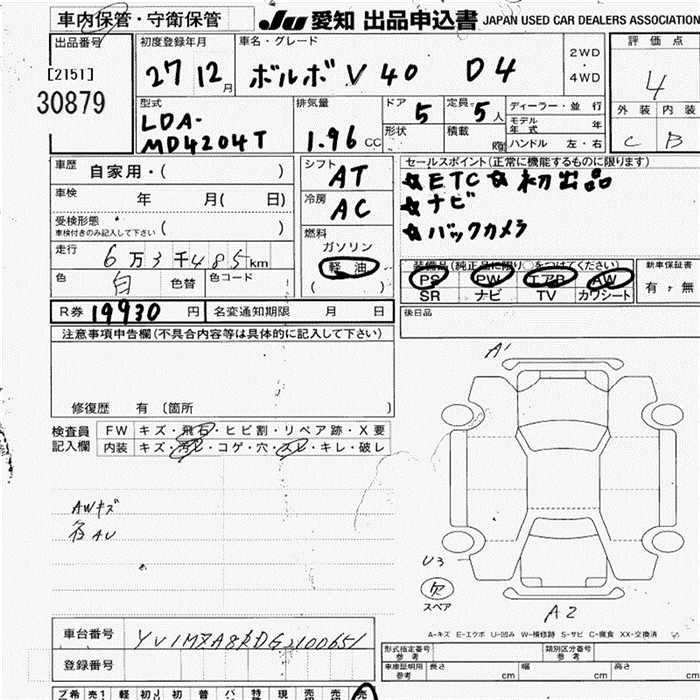 車内保管・守衛保管
Ju 愛知 出品申込書 JAPAN USED CAR DEALERS ASSOCIATION
出品番号
[2151]
30879
初度登録年月
27 12月
車名・グレード
ボルボ V40 D4
2WD
・
4WD
評価点
4
外装 内装
C B
型式
LDA-
MD4204T
排気量
1.96 CC
ドア 5
形状
定員 5人
積載 kg
ディーラー・並行
モデル年式 年
ハンドル 左・右
車歴 自家用・( )
車検 年 月( 日)
受検形態
車検付きのみ記入して下さい ( )
走行 6万3千485km
色 白 色替 色コード
シフト AT
冷房 AC
燃料
ガソリン
軽油
( )
セールスポイント(正常に機能するものに限ります)
☆ETC ☆初出品
☆ナビ
☆バックカメラ
装備品(純正品に限り○をつけてください)
PS PW エアB AW
SR ナビ TV カワシート
新車保証書
有・無
後日品
R券 19930 円 名変通知期限 月 日
注意事項申告欄(不具合内容等は具体的に記入して下さい)
修復歴 有 〔箇所 〕
検査員
記入欄
FW キズ・飛石・ヒビ割・リペア跡・X要
内装 キズ・汚レ・コゲ・穴・スレ・キレ・破レ
AWキズ
各AU
A1
U3
欠
スペア
A2
A-キズ E-エクボ U-凹み W-補修跡 S-サビ C-腐食 XX-交換済
車台番号
登録番号
形式指定番号
参考
類別区分番号
参考
車庫証明用
参考
長さ cm 幅 cm 高さ cm